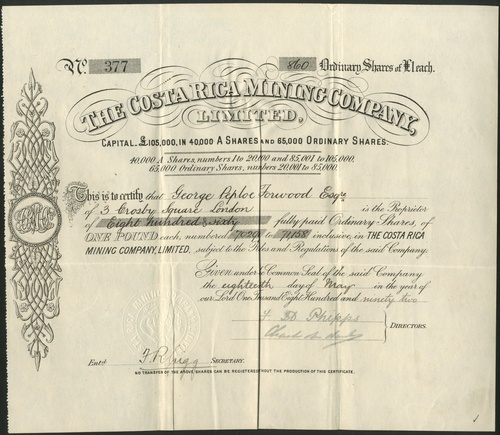 No. 377 860 Ordinary Shares of £1 each.
THE COSTA RICA MINING COMPANY,
LIMITED,
CAPITAL £105,000, IN 40,000 A SHARES AND 65,000 ORDINARY SHARES.
40,000 A Shares, numbers 1 to 20,000 and 85,001 to 105,000.
65,000 Ordinary Shares, numbers 20,001 to 85,000.
This is to certify that George Peploe Forwood Esqre
of 3 Crosby Square London is the Proprietor
of Eight hundred & sixty fully paid Ordinary Shares, of
ONE POUND each, numbered to inclusive, in THE COSTA RICA
MINING COMPANY, LIMITED, subject to the Rules and Regulations of the said Company.
Given under the Common Seal of the said Company
the eighteenth day of May in the year of
our Lord One Thousand Eight Hundred and ninety two
DIRECTORS.
Entd. SECRETARY.
NO TRANSFER OF THE ABOVE SHARES CAN BE REGISTERED WITHOUT THE PRODUCTION OF THIS CERTIFICATE.